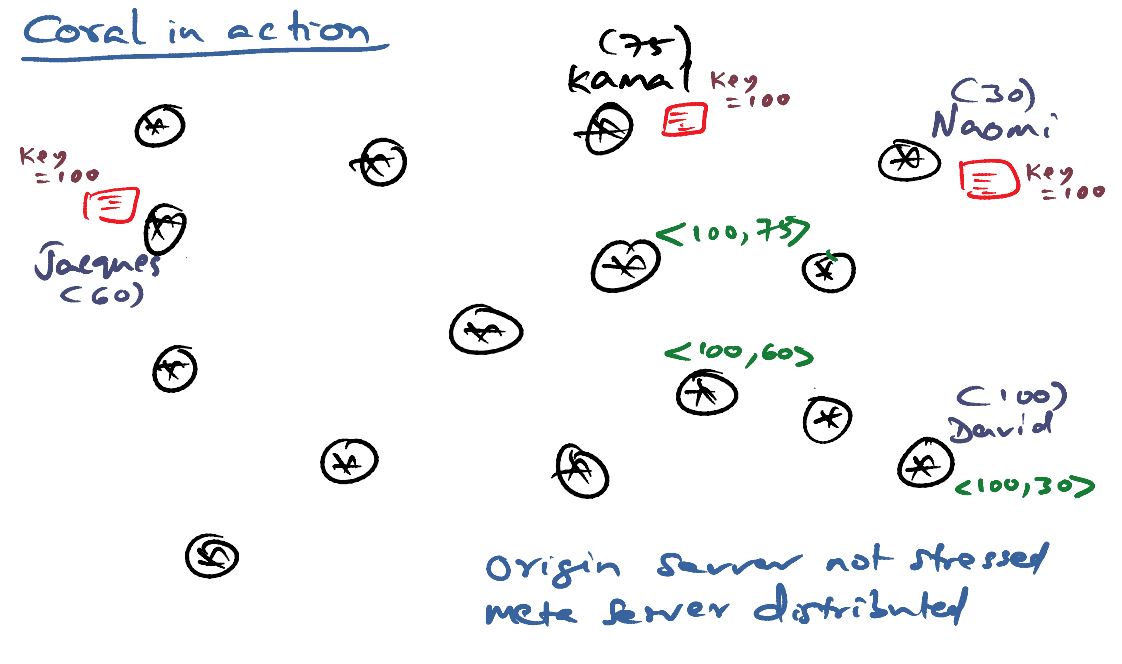 Coral in action
(75)
Kamal
Key
=100
(30)
Naomi
Key
=100
Key
=100
Jacques
(60)
<100,75>
<100,60>
(100)
David
<100,30>
Origin server not stressed
meta server distributed